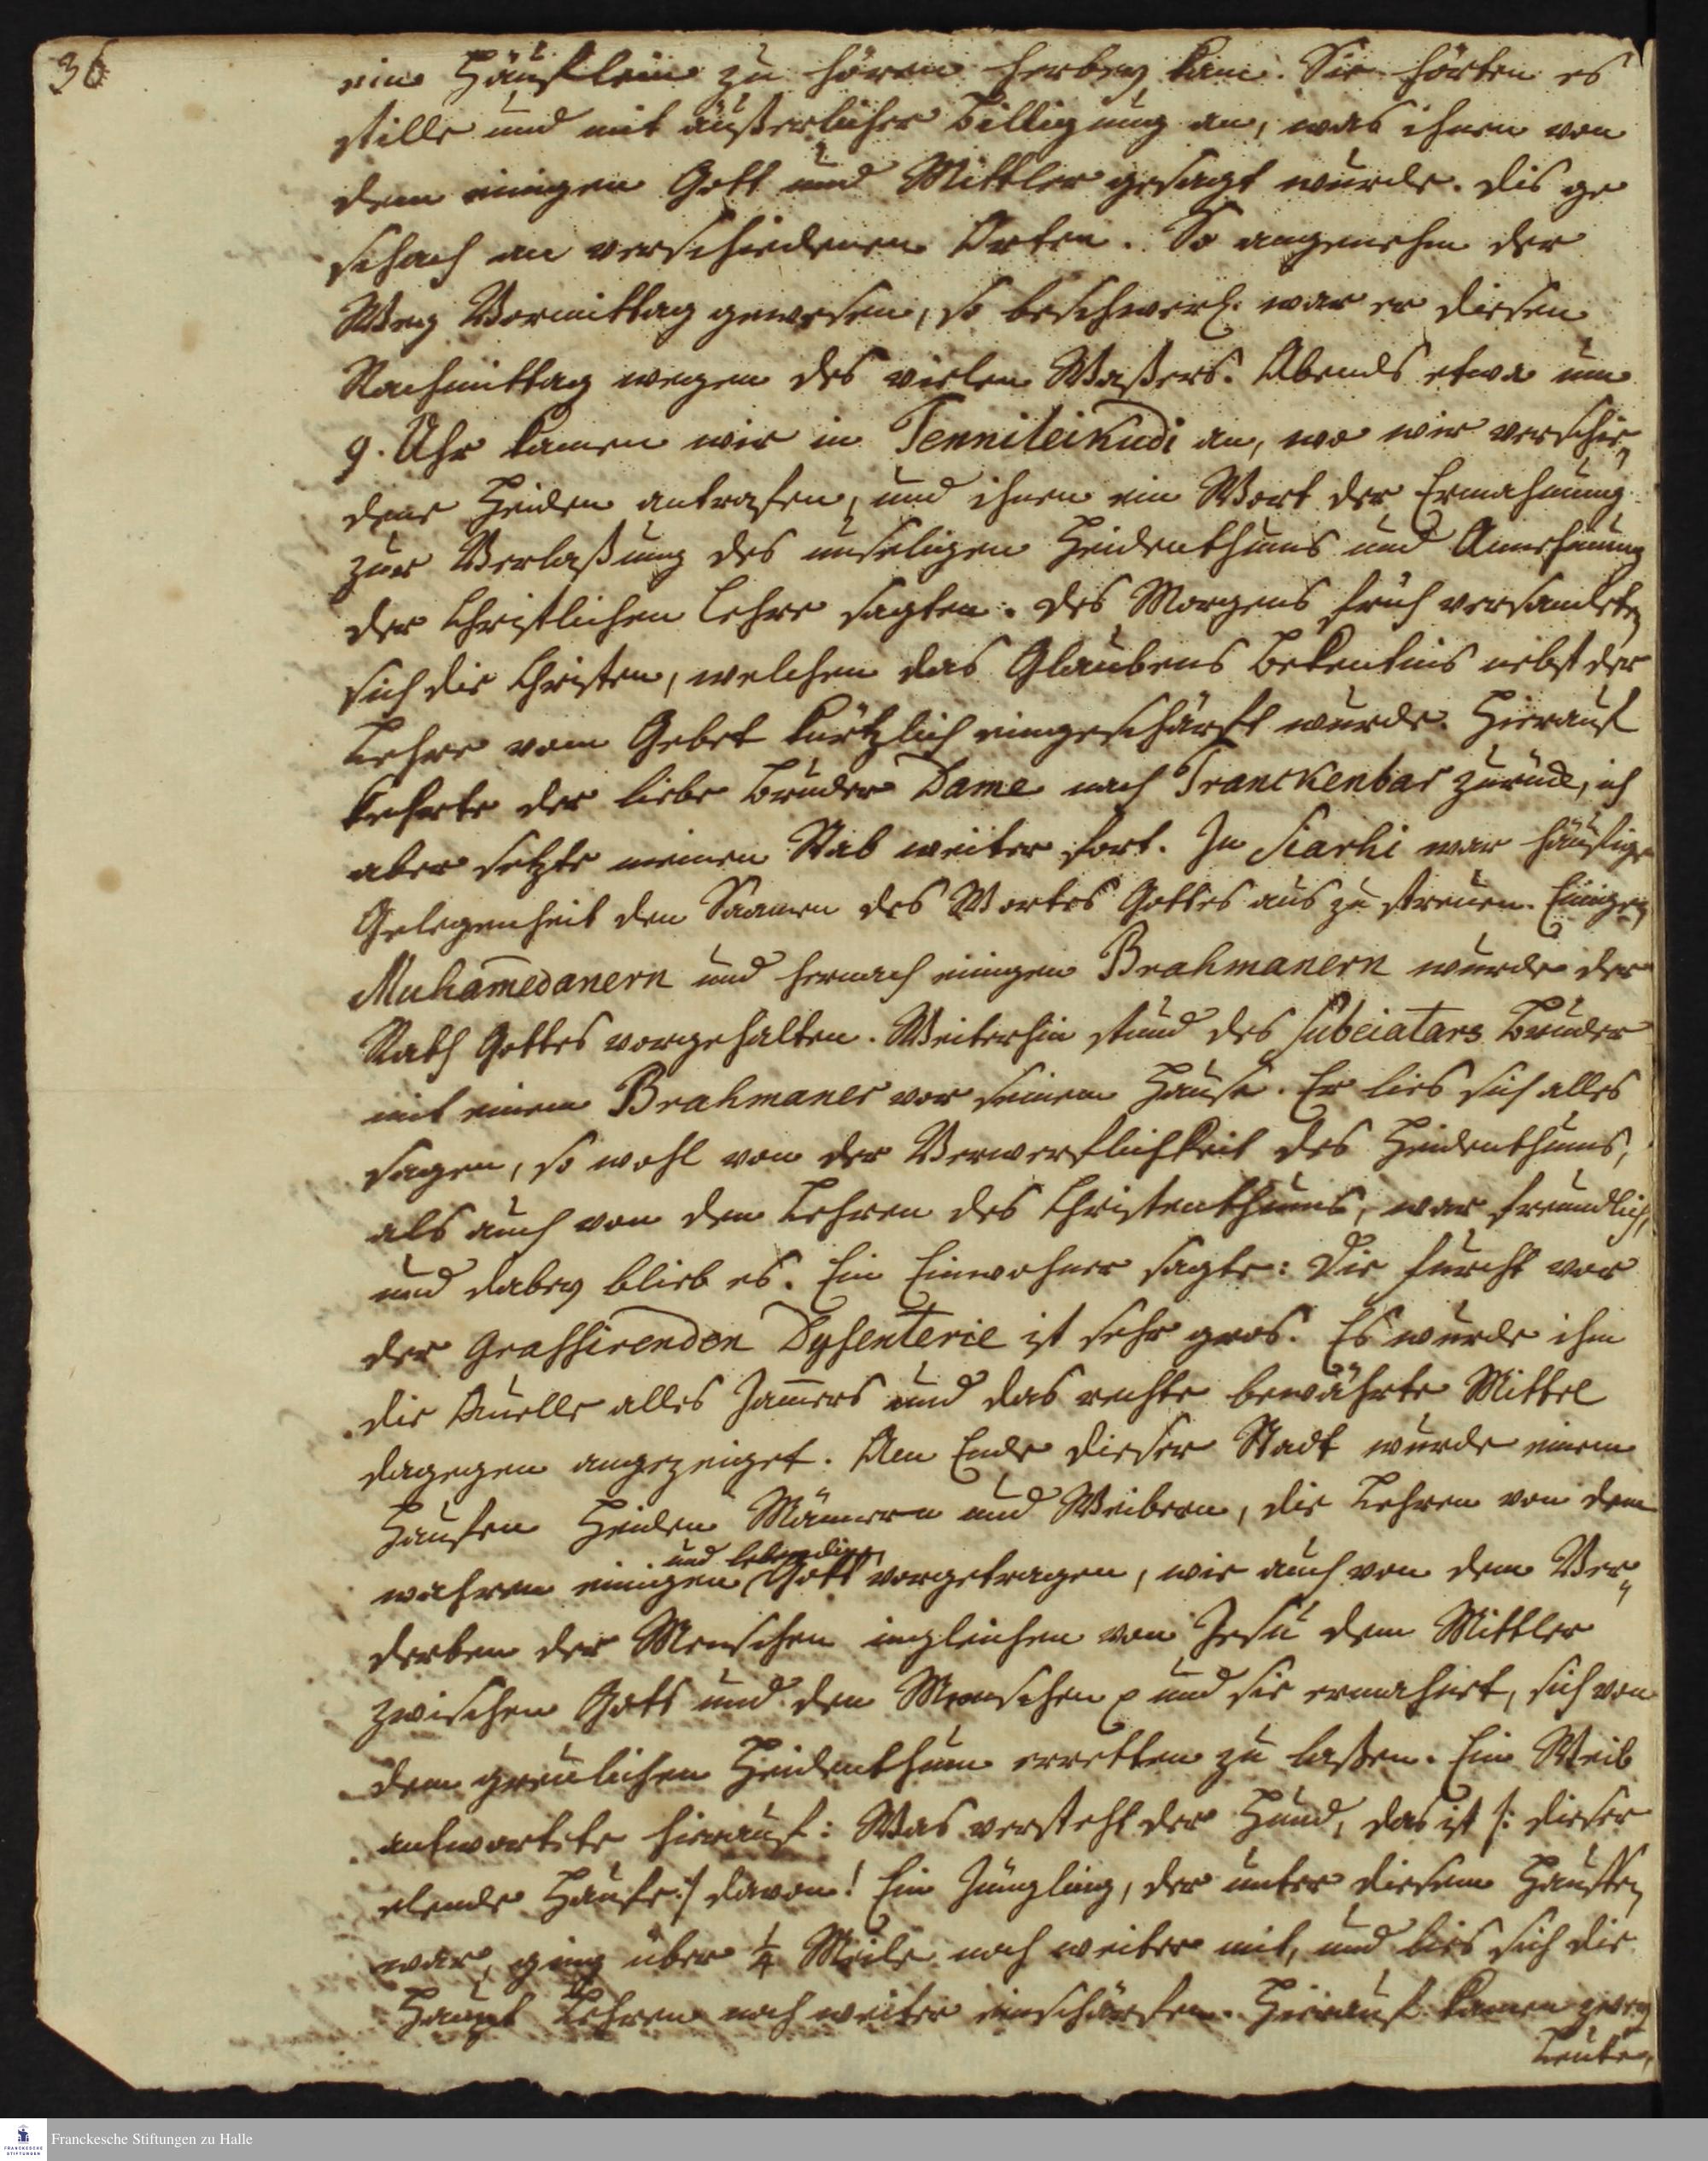 36
ein Häuflein zu hören herbey kam. Sie hörten es
stille und mit äußerlicher Billigung an, was ihnen von
dem einigen Gott und Mittler gesagt wurde. Dis ge
schach an verschiedenen Orten. So angenehm der
Weg Vormittag gewesen, so beschwerl. war er diesen
Nachmittag wegen des vielen Waßers. Abends etwa um
9. Uhr kamen wir in Tenniteikudi an, wo wir verschie„
dene Heiden antrafen, und ihnen ein Wort der Ermahnung
zur Verlaßung des unseligen Heidenthums und Annehmung
der Christlichen Lehre sagten. Des Morgens früh versamleten
sich die Christen, welchen das Glaubens Bekentnis nebst der
Lehre vom Gebet kürtzlich eingeschärft wurde. Hierauf
kehrte der liebe Bruder Dame nach Tranckenbar zurück, ich
aber setzte meinen Stab weiter fort. In Siarhi war häufige
Gelegenheit den Saamen des Wortes Gottes aus zu streuen. Einigen
Muham̅edanern und hernach einigen Brahmanern wurde der
Rath Gottes vorgehalten. Weiterhin stund des Subeiatars Bruder
mit einem Brahmaner vor seinem Hause. Er lies sich alles
sagen, so wohl von der Verwerflichkeit des Heidenthums,
als auch von den Lehren des Christenthums, war freundlich,
und dabey blieb es. Ein Einwohner sagte: Die Furcht vor
der grassirenden Dysenterie ist sehr gros. Es wurde ihm
die Quelle alles Jam̅ers und das rechte bewährte Mittel
dagegen angezeiget. Am Ende dieser Stadt wurde einem
Haufen Heiden Männern und Weibern, die Lehren von dem
und lebendigen
wahren einigen Gott vorgetragen, wie auch von dem Ver„
derben der Menschen ingleichen von Jesu dem Mittler
zwischen Gott und den Menschen p und sie ermahnet, sich von
dem greulichen Heidenthum erretten zu laßen. Ein Weib
antwortete hierauf: Was versteht der Hund, das ist /: dieser
elende Haufe :/ davon! Ein Jüngling, der unter diesem Hauffen
war, ging über ¼ Meile noch weiter mit, und lies sich die
Haupt Lehren noch weiter einschärfen. Hierauf kamen zwey
Leute,
Franckesche Stiftungen zu Halle
FRANCKESCHE
STIFTUNGEN